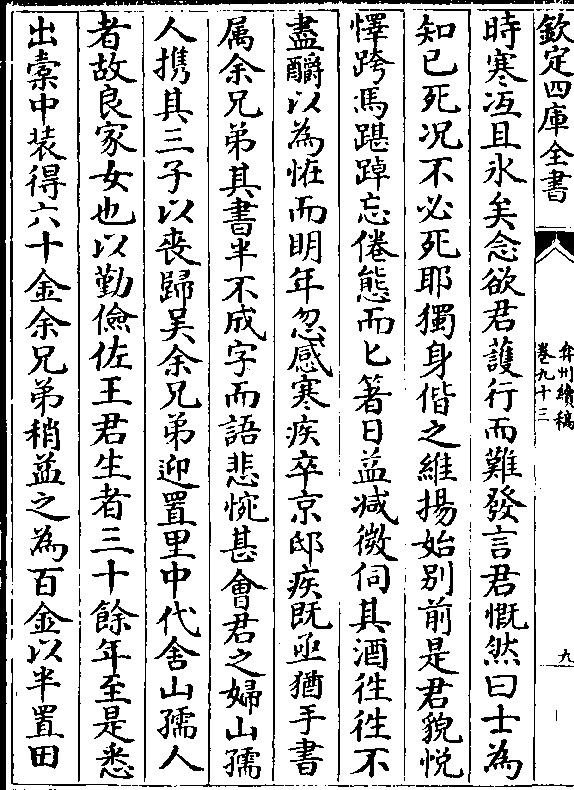 欽定四庫全書
弇州續稿
卷九十三
九
時寒冱且氷矣念欲君護行而難發言君慨然曰士為
知己死况不必死耶獨身偕之維揚始别前是君貌悦
懌跨馬踸踔忘倦態而匕箸日益减微伺其酒徃徃不
盡釂以為恠而明年忽感寒疾卒京邸疾既亟猶手書
属余兄弟其書半不成字而語悲惋甚會君之婦山孺
人携其三子以喪歸吴余兄弟迎置里中代舍山孺人
者故良家女也以勤儉佐王君生者三十餘年至是悉
出橐中装得六十金余兄弟稍益之為百金以半置田